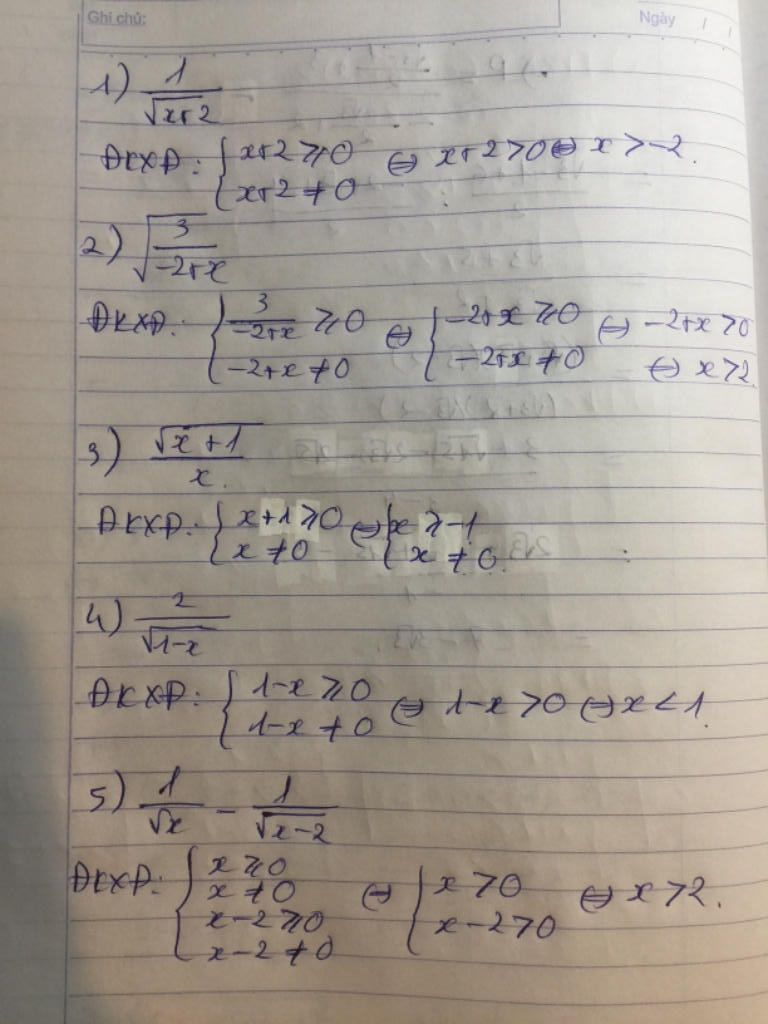 Ghi chú: Ngày / /
1) 1/√(x+2)
ĐKXĐ: { x+2 ⩾ 0 ⇔ x+2 > 0 ⇔ x > -2.
x+2 ≠ 0
2) √(3/(-2+x))
ĐKXĐ: { 3/(-2+x) ⩾ 0 ⇔ { -2+x ⩾ 0 ⇔ -2+x > 0
-2+x ≠ 0 -2+x ≠ 0 ⇔ x > 2.
3) √(x+1)/x.
ĐKXĐ: { x+1 ⩾ 0 ⇔ { x ⩾ -1
x ≠ 0 x ≠ 0.
4) 2/√(1-x)
ĐKXĐ: { 1-x ⩾ 0 ⇔ 1-x > 0 ⇔ x < 1.
1-x ≠ 0
5) 1/√x - 1/√(x-2)
ĐKXĐ: { x ⩾ 0 ⇔ { x > 0 ⇔ x > 2.
x ≠ 0
x-2 ⩾ 0 x-2 > 0
x-2 ≠ 0